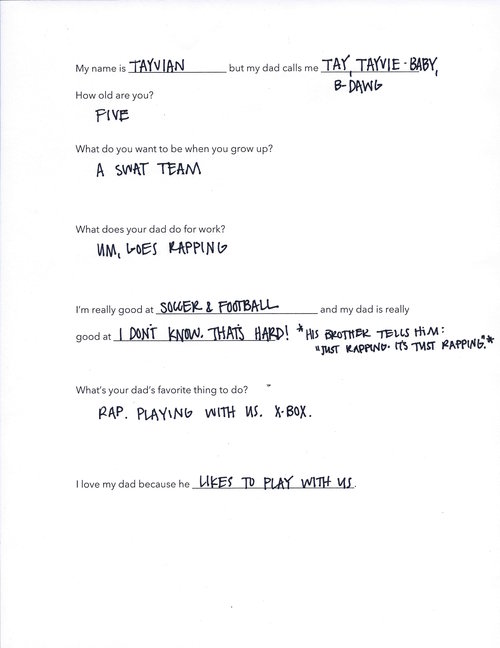 My name is TAYVIAN but my dad calls me TAY, TAYVIE-BABY,
B-DAWG
How old are you?
FIVE
What do you want to be when you grow up?
A SWAT TEAM
What does your dad do for work?
UM, GOES RAPPING
I'm really good at SOCCER & FOOTBALL and my dad is really
good at I DON'T KNOW. THAT'S HARD! *HIS BROTHER TELLS HIM:
"JUST RAPPING. IT'S JUST RAPPING."*
What's your dad's favorite thing to do?
RAP. PLAYING WITH US. X-BOX.
I love my dad because he LIKES TO PLAY WITH US.